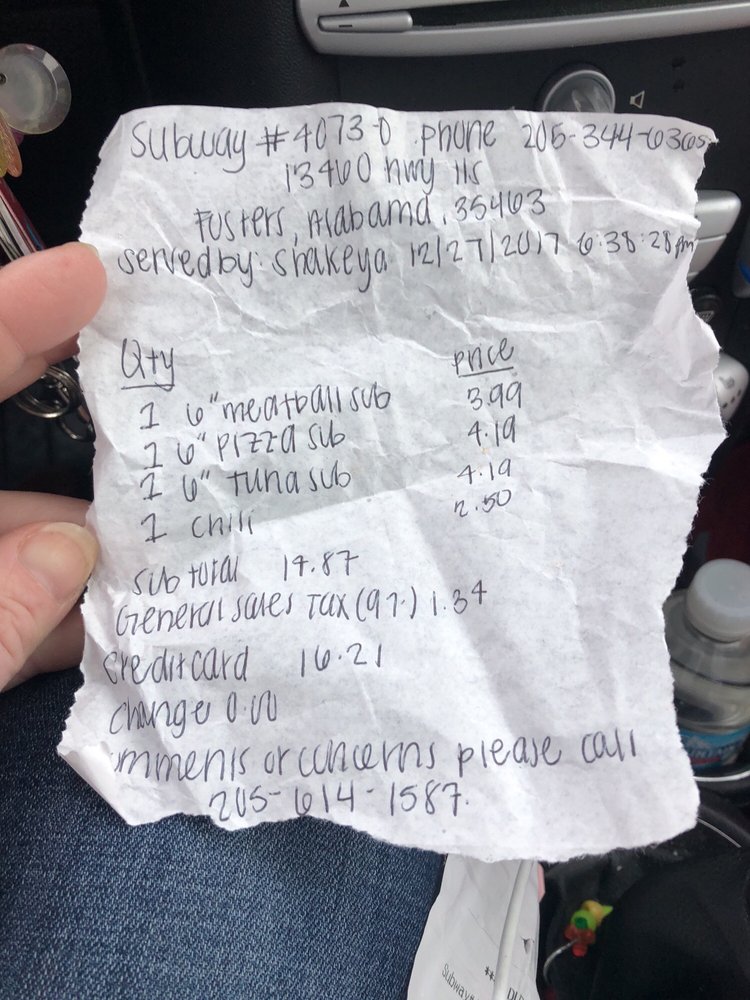 Subway #4073-0 phone 205-344-6365
13460 hwy 11s
Fusters, Alabama, 35463
served by: Shakeya 12/27/2017 6:38:28pm
Qty price
1 6" meatball sub 3.99
1 6" pizza sub 4.19
1 6" tuna sub 4.19
1 chili 2.50
sub total 14.87
General sales Tax (9%) 1.34
credit card 16.21
change 0.00
omments or concerns please call
205-614-1587.
Subway#